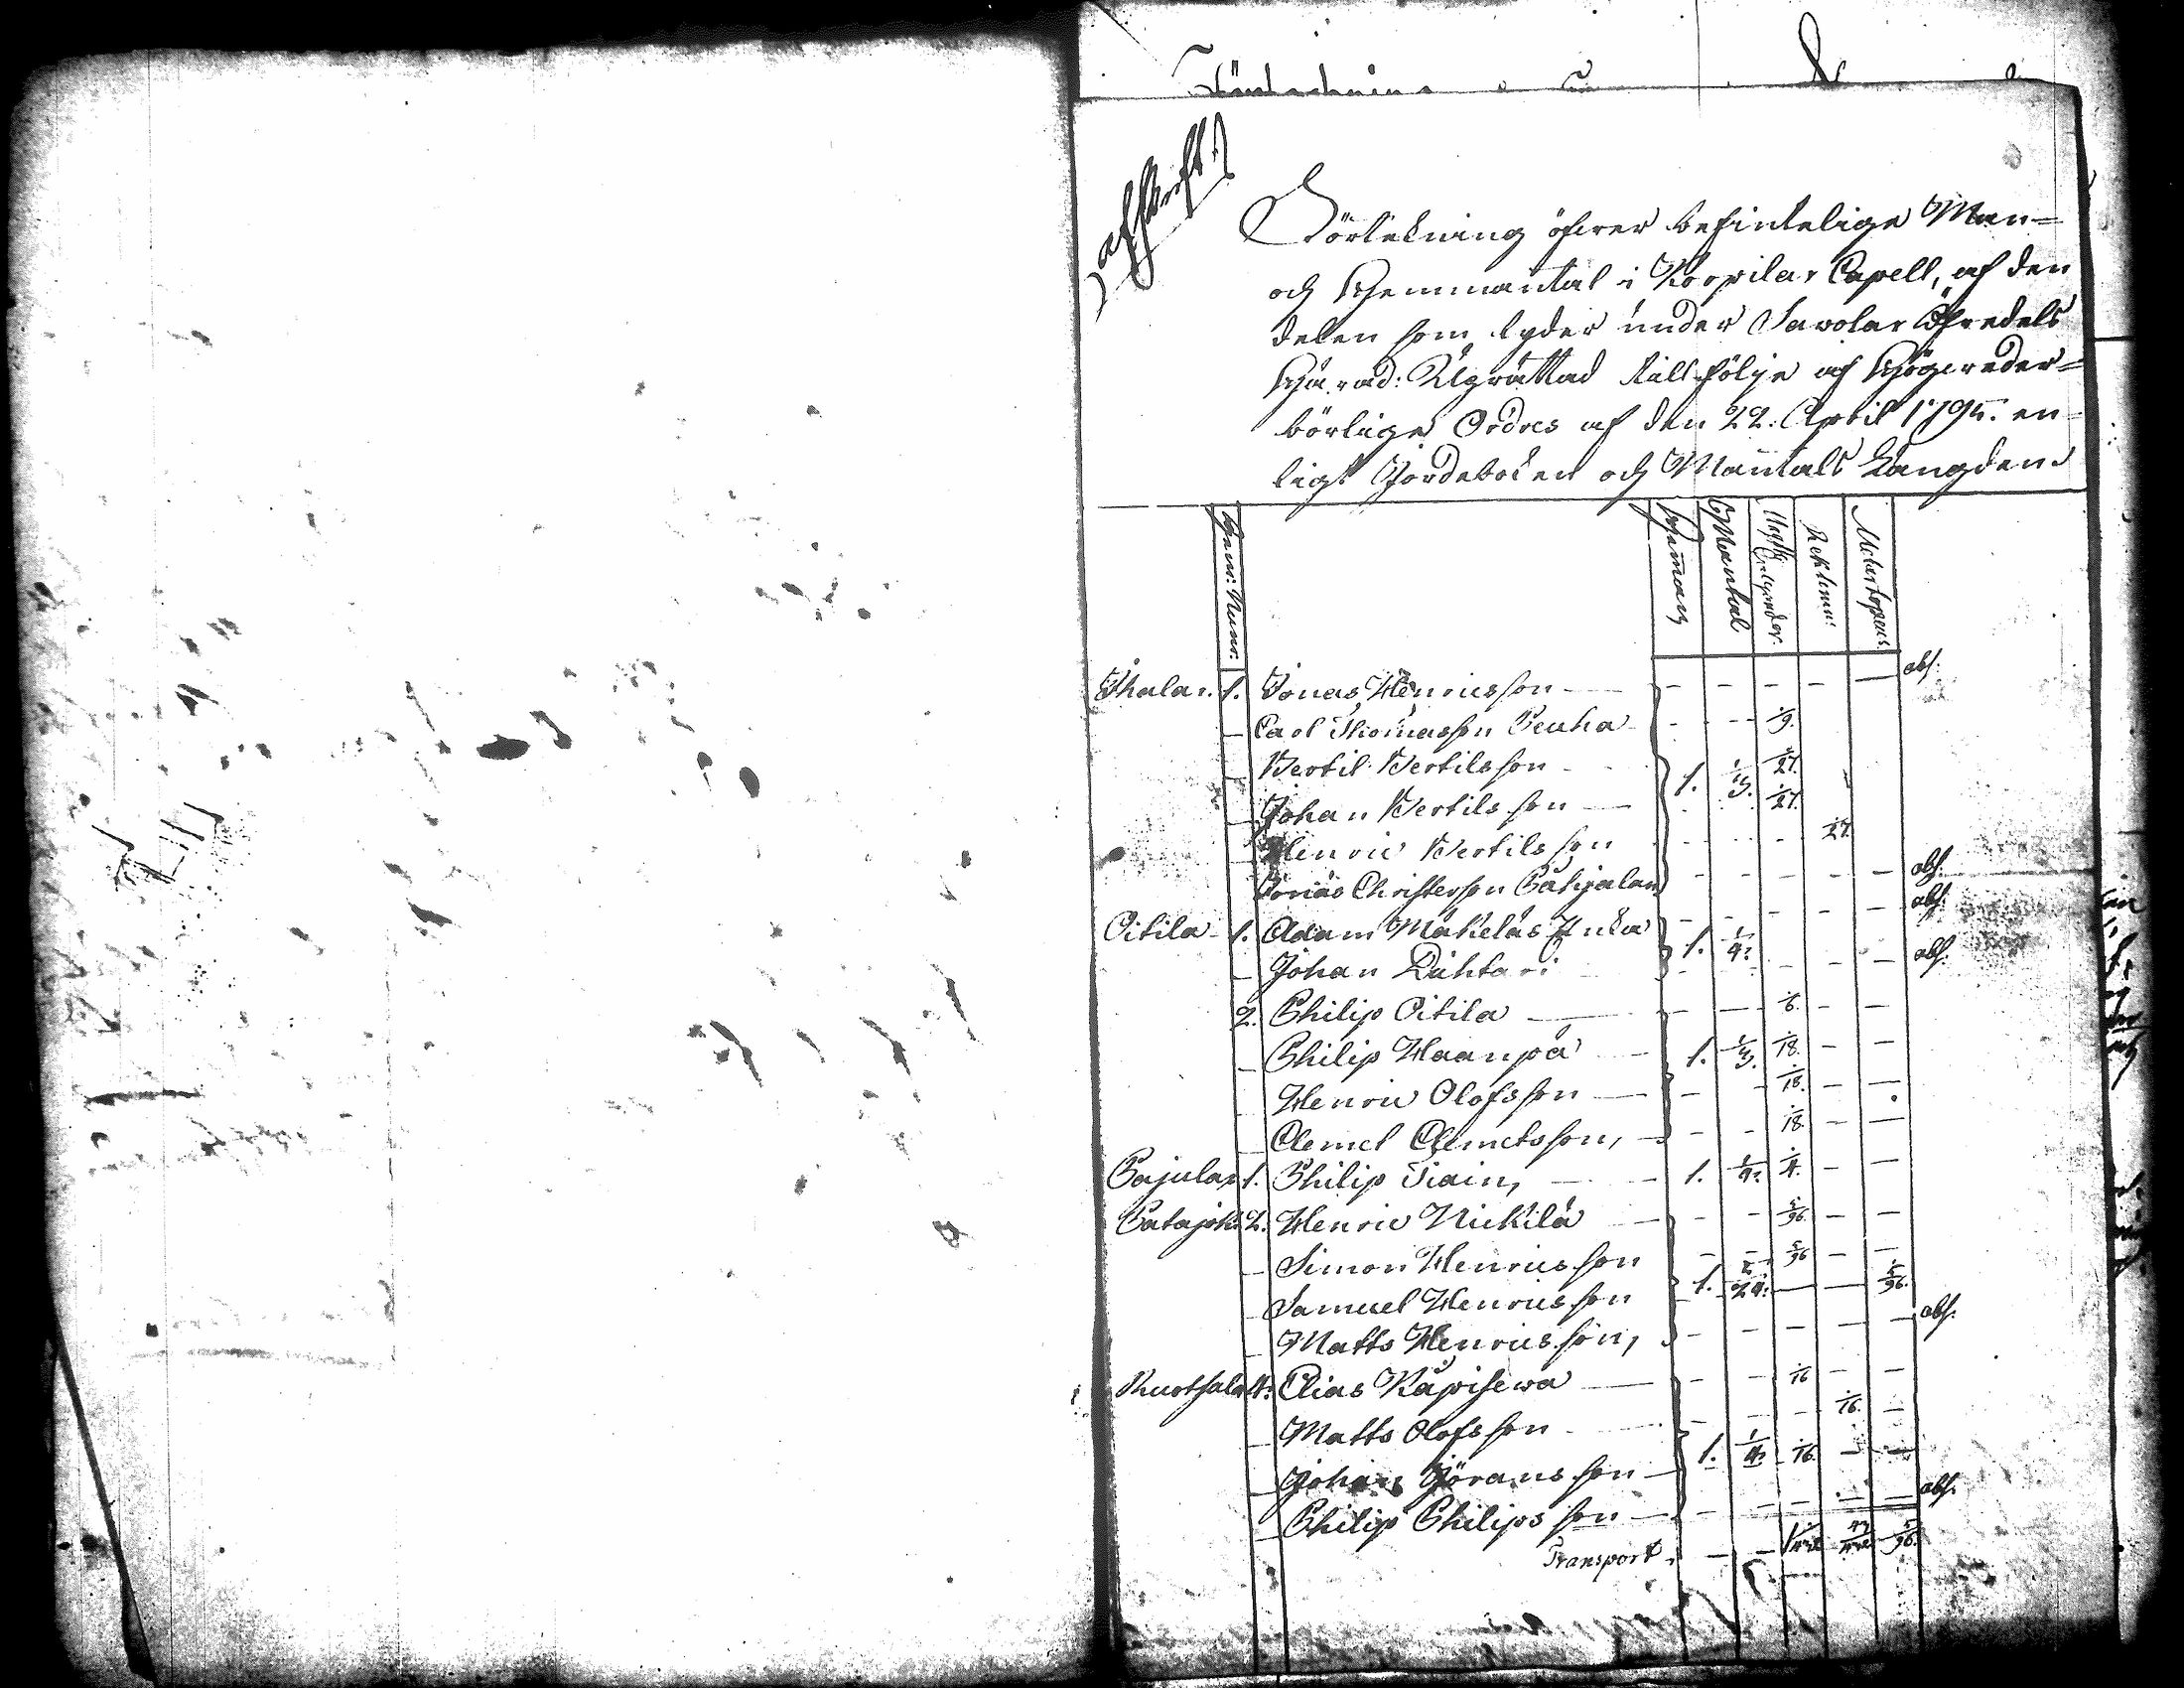 Förteckning
afskrift
Förtekning öfver befintelige Man=
och Hemmantal i Korpilax Capell, af den
delen som lyder under Savolax Öfredels
Härad: Uprättad till följe af Högvederbörlige
Ordres af den 22: April 1795. en=
ligt Jordeboken och Mantals Längden.
Hem: Num: Hemman Mantal
Ihalax. 1. Jonas Henricsson — — — — — abs:
— Carl Thomasson Peuha — — — 1/9.
— Bertil Bertilsson 1/27.
— Johan Bertilsson — 1. 1/3. 1/27.
— Henric Bertilsson 1/27.
Jonas Christersson Pahjalax — — — — — abs:
Oitila 1. Adam Mäkeläs Enka — — — — — abs:
— Johan Lähtari 1. 1/4. — — — abs:
2. Philip Oitila — — — 1/6. — —
— Philip Haanpä — 1. 1/3. 1/18. — —
Henric Olofsson — — — 1/18. — —
Clemet Clemetsson, — — — 1/18. — —
Pajulax 1. Philip Piain, — 1. 1/4. 1/4. — —
Patajok: 2. Henric Nickilä — — — 5/96. — —
— Simon Henricsson — — 5/96 — —
— Samuel Henricsson 1. 5/24. — — 5/96.
— Matts Henricsson, — — — — — abs:
4. Elias Käpisewa — — — 1/16 — —
— Matts Olofsson — — — — 1/16. —
— Johan Göransson — 1. 1/4. 1/16. — —
— Philip Philipsson — — — — — — abs.
Transport. — — 5/96.